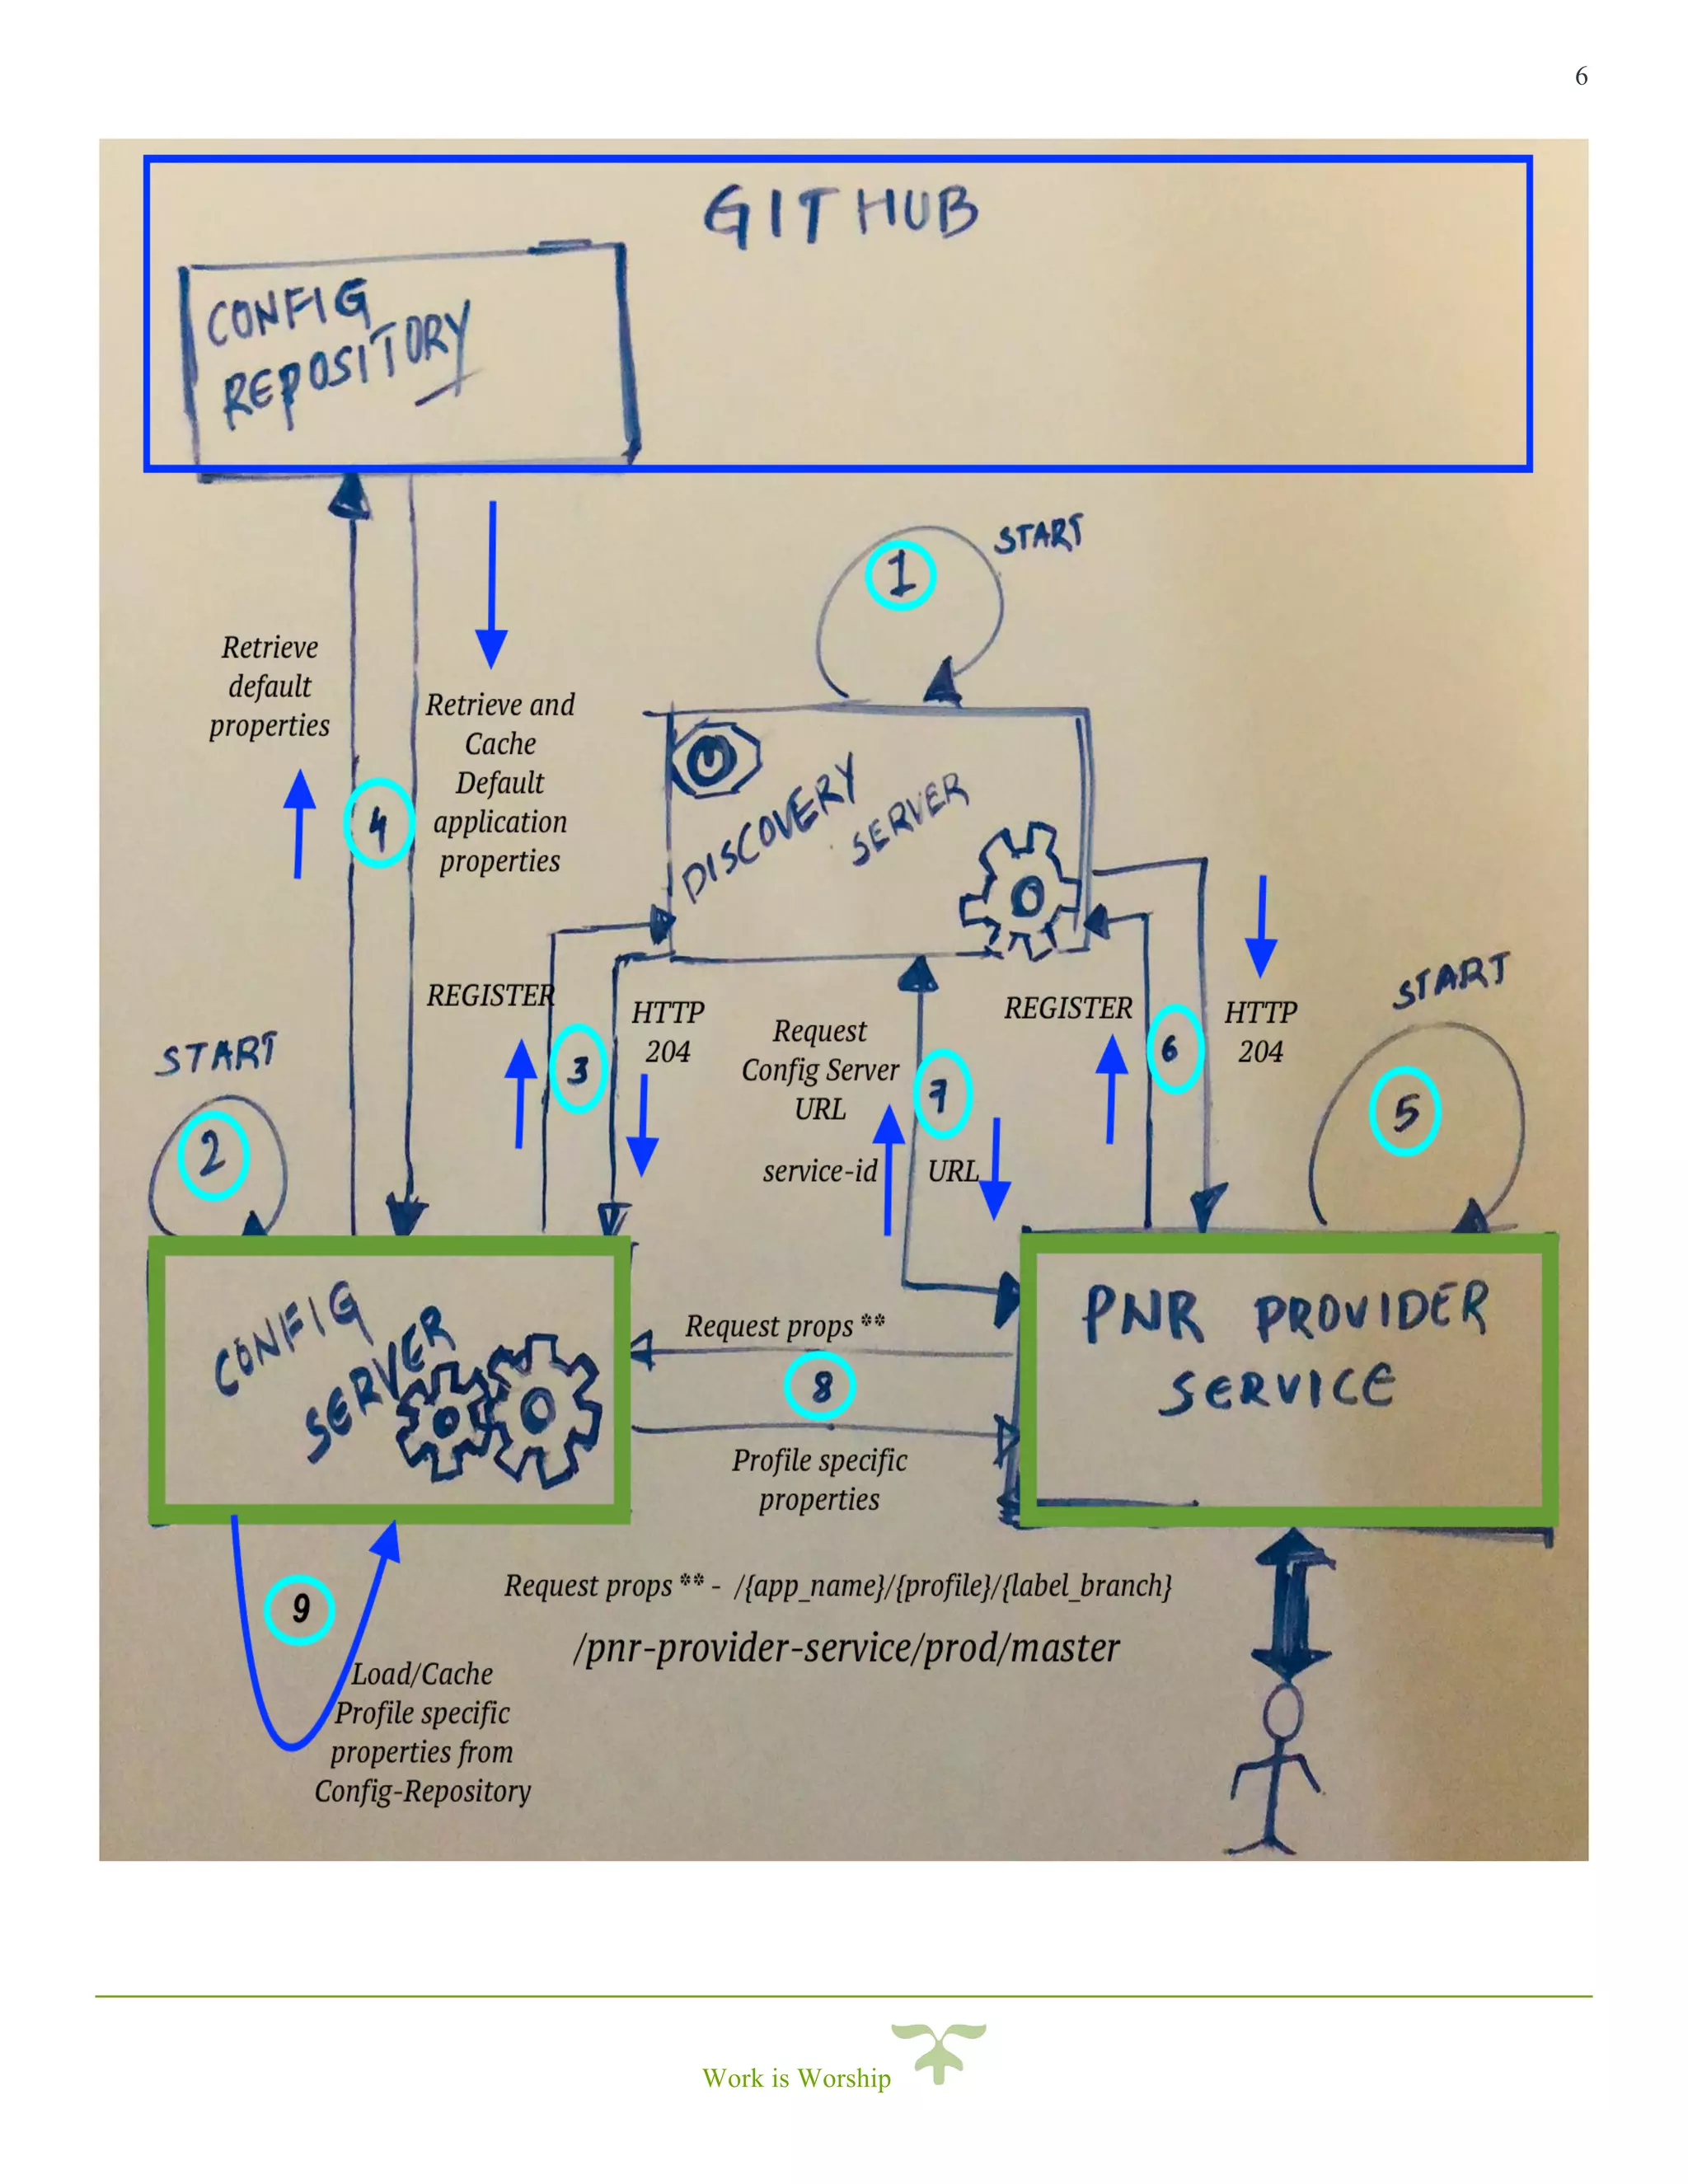 6
GITHUB
CONFIG
REPOSITORY
1
START
Retrieve
default
properties
4
Retrieve and
Cache
Default
application
properties
DISCOVERY
SERVER
REGISTER
3
HTTP
204
Request
Config Server
URL
service-id
7
URL
REGISTER
6
HTTP
204
START
5
START
2
CONFIG
SERVER
Request props **
8
Profile specific
properties
PNR PROVIDER
SERVICE
Request props ** - /{app_name}/{profile}/{label_branch}
/pnr-provider-service/prod/master
9
Load/Cache
Profile specific
properties from
Config-Repository
Work is Worship